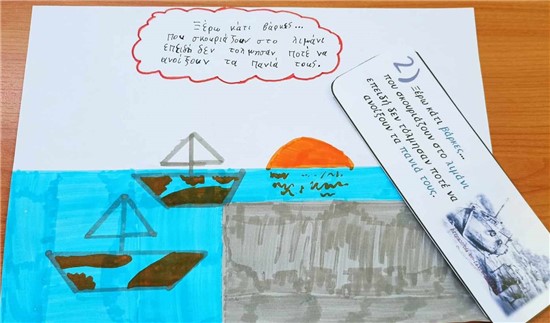 Ξέρω κάτι βάρκες...
που σκουριάζουν στο λιμάνι
επειδή δεν τολμησαν ποτέ να
ανοίξουν τα πανιά τους.
2)
Ξέρω κάτι βάρκες...
που σκουριάζουν στο λιμάνι
επειδή δεν τόλμησαν ποτέ να
ανοίξουν τα πανιά τους.